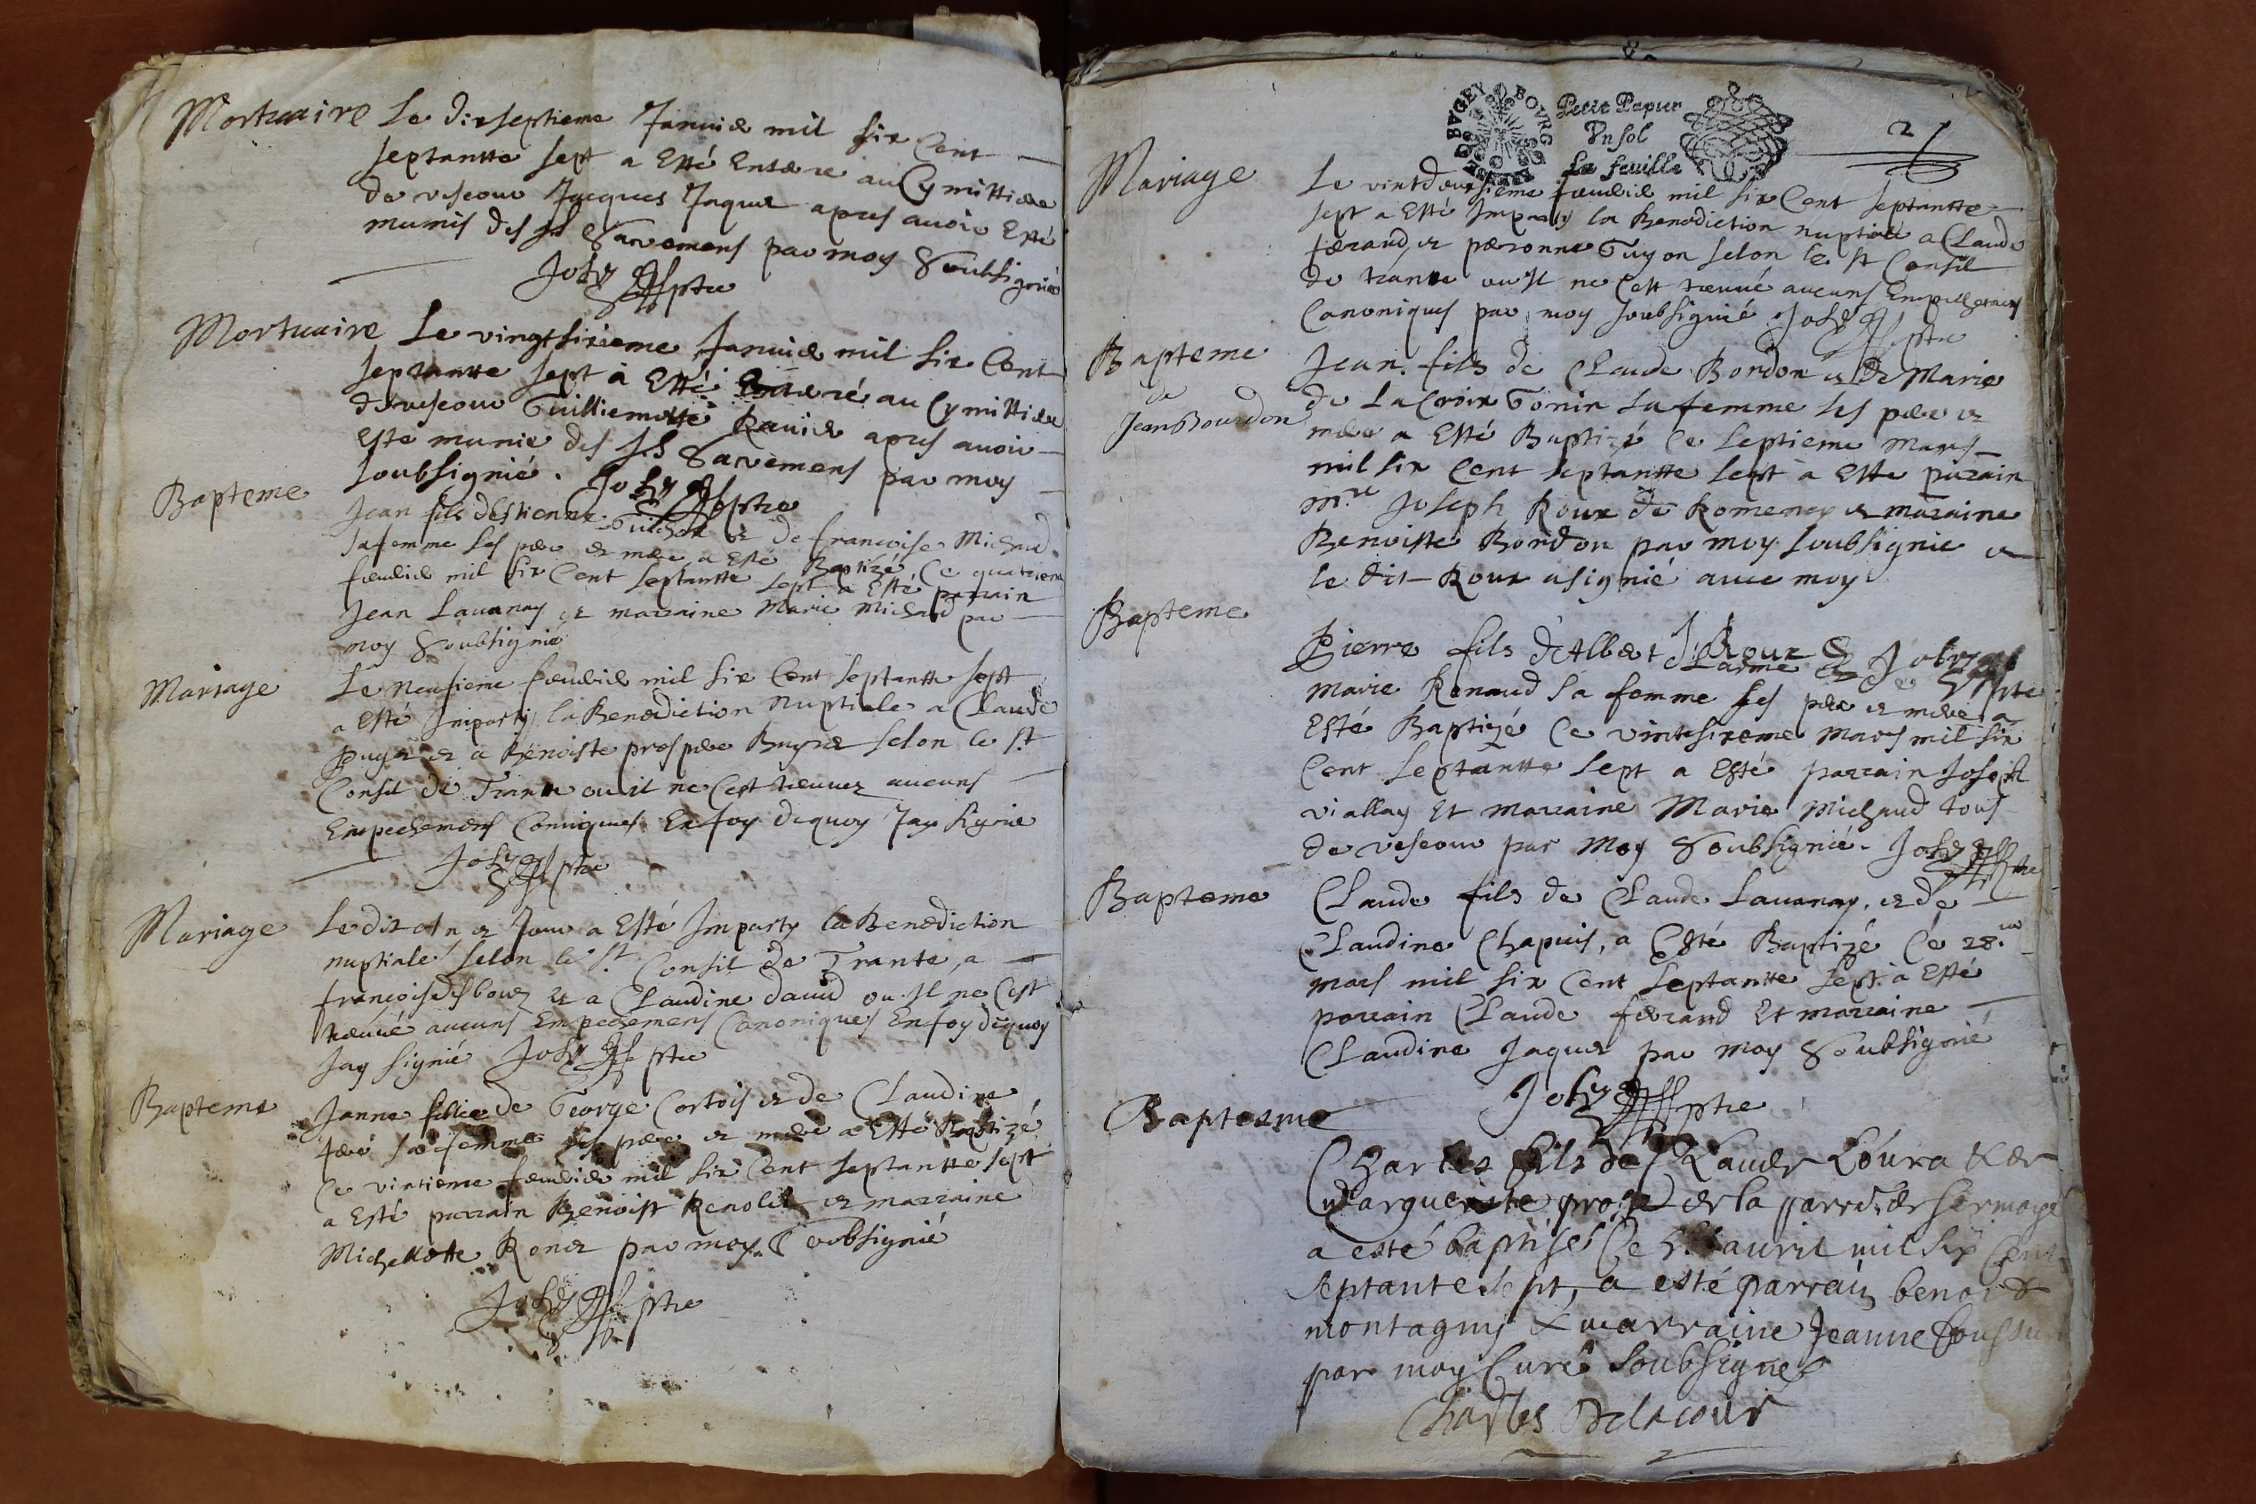 Mortuaire
Le dixseptieme Januier mil six Cent
septantte sept a Esté Enterre au Cymittiere
de vescour Jacques Jaquet apres auoir Esté
munis des Sts Sacremens par moy Soubsignié
Joly ptre
Mortuaire
Le vingtsixieme Januier mil six Cent
septantte sept a Esté Enterré au Cymittiere
de vescour Guilliemette Rauier apres auoir
Esté munie des Sts Sacremens par moy
soubsignié. Joly ptre
Bapteme
Jean fils d'Estienne Guichard et de francoise Michaud
sa femme ses pere et mere a Esté Baptizé Ce quatrieme
feurier mil six Cent septantte sept a Esté parrain
Jean Lauanay et marraine Marie Michaud par
moy Soubsignié
Mariage
Le Neufieme feurier mil six Cent septantte sept
a Esté Imparty la Benediction Nuptiale a Claude
et a Benoiste prospere selon le St
Consil de Trante ou il ne Cest treuuez aucuns
Empechemens Conniques En foy dequoy Jay signié
Joly ptre
Mariage
Le dit et Jour a Esté Imparty la Benediction
nuptiale selon le St Consil de Trante, a
francois et a Claudine dauid ou Il ne Cest
treuué aucuns Empechemens Canoniques En foy dequoy
Jay signié Joly ptre
Bapteme
Janne fillie de George Cortois et de Claudine
sa femme ses pere et mere a Esté Baptizé
Ce vintieme feurier mil six Cent septantte sept
a Esté parrain Benoist Renolet et marraine
Michellotte par moy Soubsignié
Joly ptre
BVGEY BOVRG
Petit Papier
Vn sol
La feuille
2
Mariage
Le vintdeuxsieme feurier mil six Cent septantte
sept a Esté Imparty la Benediction nuptiale a Claude
ferand et perronne Guyon selon le St Consil
de trante ou Il ne Cest treuué aucuns Empechemens
Canoniques par moy soubsignié. Joly ptre
Bapteme
de
Jean Bourdon
Jean fils de Claude Bordon et de Marie
de La Croix Gonin sa femme ses pere et
mere a Esté Baptizé Ce septieme Mars
mil six Cent septantte sept a Esté parrain
Mre Joseph Roux de Romenay et marraine
Benoiste Bordon par moy soubsignié et
le dit Roux a signié auec moy
J Roux Joly ptre
Bapteme
Pierre fils d'Albert Larme et de
Marie Renaud sa femme ses pere et mere a
Esté Baptizé Ce vintsixeme Mars mil six
Cent septantte sept a Esté parrain Joseph
viallay Et marraine Marie Michaud tous
de vescour par Moy Soubsignié. Joly ptre
Bapteme
Claude fils de Claude Lauanay, et de
Claudine Chapuis, a Esté Baptizé Ce 28me
mars mil six Cent septantte sept a Esté
parrain Claude ferand Et marraine
Claudine Jaquet par moy Soubsignié
Joly ptre
Baptesme
Charles fils de Claude &
Marguerite de la parr. de sermoye
a esté baptisé Ce auril mil six Cent
septante sept, a esté parrain benoit
montagny & marraine Jeanne
par moy Curé Soubsigné
Charles Delacour